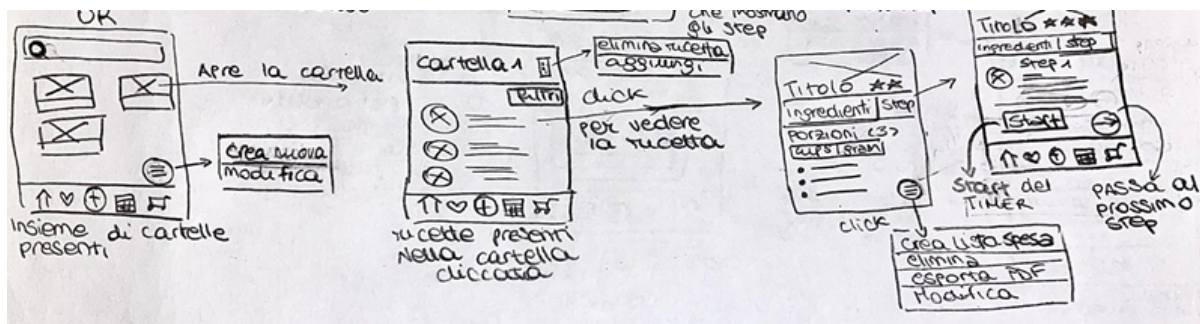 OK
Apre la cartella
crea nuova
modifica
Insieme di cartelle
presenti
che mostrano
gli step
elimina ricetta
aggiungi
cartella 1
Filtri
click
per vedere
la ricetta
ricette presenti
nella cartella
cliccata
Titolo ★★
Ingredienti | Step
porzioni <3>
cups | gram
click
crea lista spesa
elimina
esporta PDF
Modifica
Titolo ★★★
ingredienti | step
step 1
Start
Start del
TIMER
PASSA al
prossimo
step